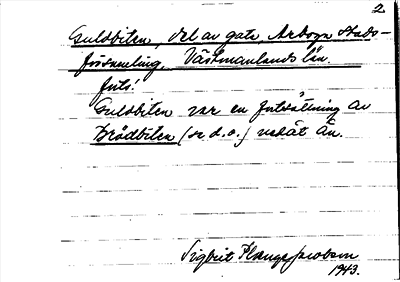 2
Guldbiten, del av gata, Arboga stads-
församling, Västmanlands län.
Guldbiten var en fortsättning av
Brödbiten (se d.o.) nedåt ån.
Sigbrit Plange Jacobson
1943.